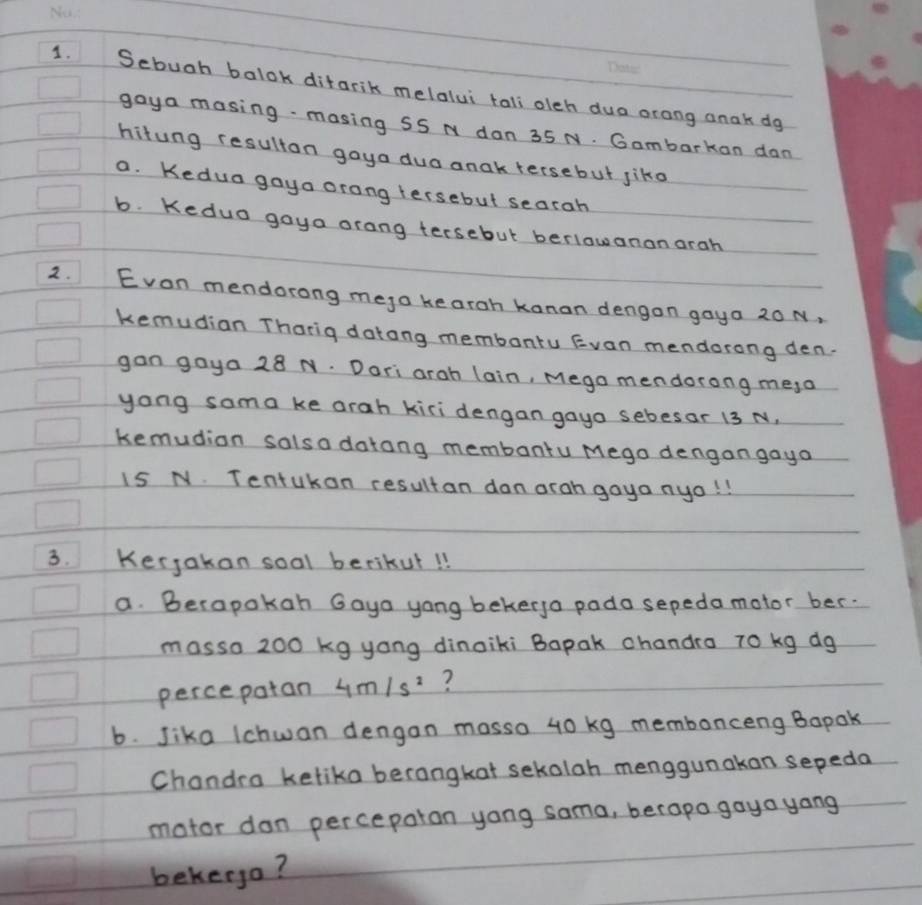 No.:
Date:
1. Sebuah balok ditarik melalui tali oleh dua orang anak dg
gaya masing-masing 55 N dan 35 N. Gambarkan dan
hitung resultan gaya dua anak tersebut jika
a. Kedua gaya orang tersebut searah
b. Kedua gaya orang tersebut berlawanan arah
2. Evan mendorong meja kearah kanan dengan gaya 20 N,
kemudian Thariq datang membantu Evan mendorong den-
gan gaya 28 N. Dari arah lain, Mega mendorong meja
yang sama ke arah kiri dengan gaya sebesar 13 N,
kemudian salsa datang membantu Mega dengan gaya
15 N. Tentukan resultan dan arah gaya nya!!
3. Kerjakan soal berikut!!
a. Berapakah Gaya yang bekerja pada sepeda motor ber-
massa 200 kg yang dinaiki Bapak Chandra 70 kg dg
percepatan 4m/s²?
b. Jika Ichwan dengan massa 40 kg membonceng Bapak
Chandra ketika berangkat sekolah menggunakan sepeda
motor dan percepatan yang sama, berapa gaya yang
bekerja?